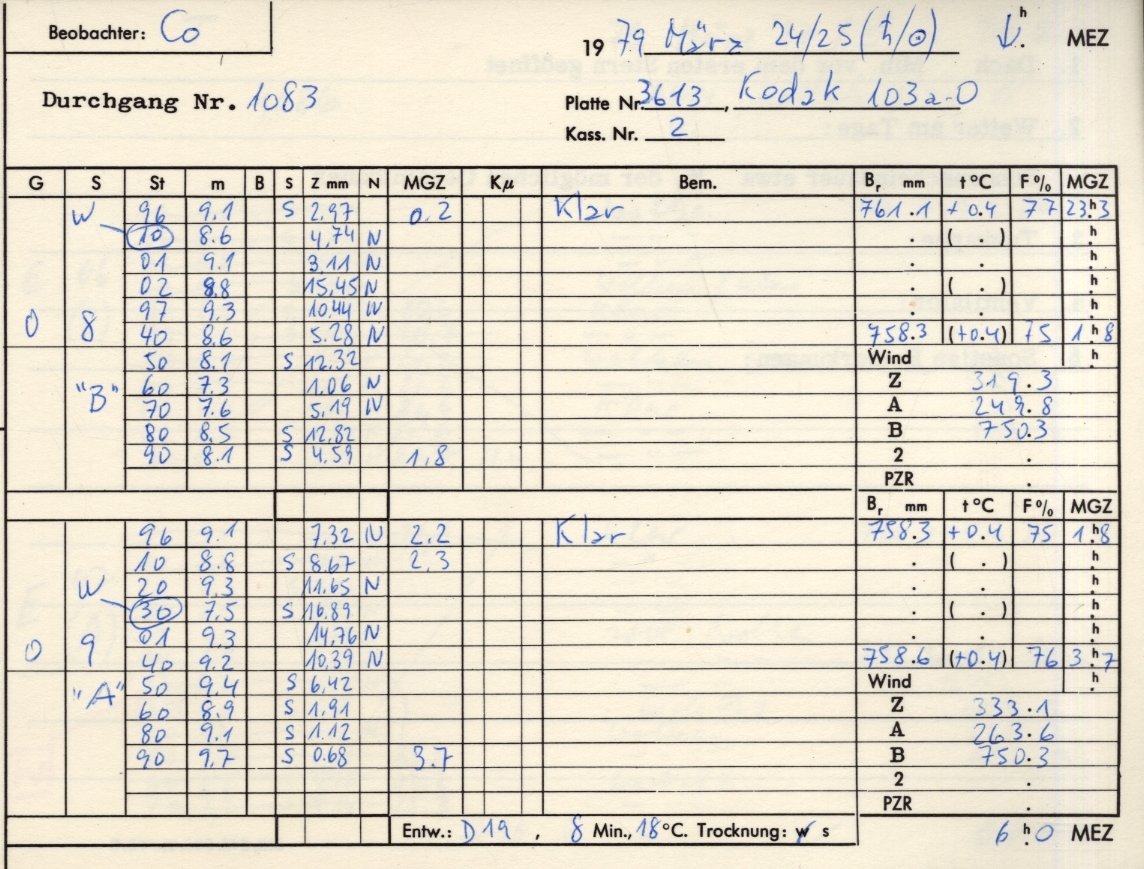 Beobachter: Co
19 79 März 24/25 (ħ/⊙) h MEZ
Durchgang Nr. 1083
Platte Nr. 3613, Kodak 103a-O
Kass. Nr. 2
G S St m B S Z mm N MGZ Kμ Bem. Br mm t °C F % MGZ
W 96 9.1 S 2,97 0.2 Klar 761.1 +0.4 77 23h3
10 8.6 4,74 N ( . ) h
01 9.1 3,11 N . . h
02 8.8 15,45 N . ( . ) h
97 9,3 10,44 N . . h
0 8 40 8.6 5.28 N 758.3 (+0.4) 75 1h8
50 8.1 S 12,32 Wind h
"B" 60 7.3 1,06 N Z 319.3
70 7.6 5,19 N A 249.8
80 8,5 S 12,82 B 750.3
90 8.1 S 4,59 1,8 2 .
PZR .
Br mm t °C F % MGZ
96 9.1 7,32 N 2,2 Klar 758.3 +0.4 75 1h8
10 8.8 S 8,67 2,3 . ( . ) h
W 20 9,3 11.65 N . . h
30 7.5 S 16,89 . ( . ) h
01 9,3 14,76 N . . h
0 9 40 9.2 10,39 N 758.6 (+0.4) 76 3h7
"A" 50 9.4 S 6,42 Wind h
60 8.9 S 1.91 Z 333.1
80 9.1 S 1.12 A 263.6
90 9.7 S 0.68 3.7 B 750.3
2 .
PZR .
Entw.: D 19, 8 Min., 18 °C. Trocknung: w s 6h0 MEZ